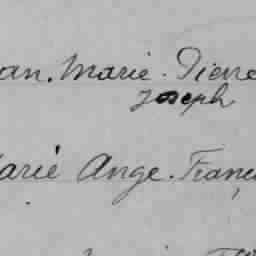 an. Marie. Pierre
Joseph
arie Ange. Franç